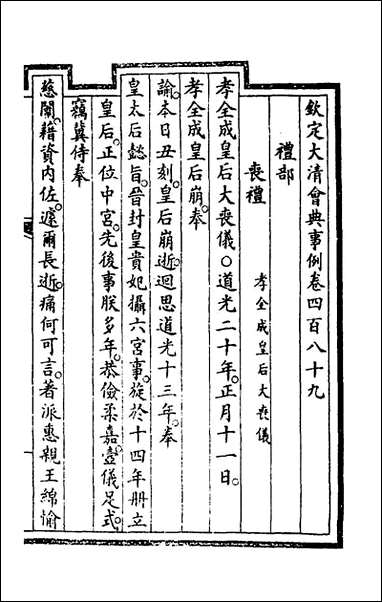 欽定大清會典事例卷四百八十九
禮部
喪禮 孝全成皇后大喪儀
孝全成皇后大喪儀○道光二十年正月十一日。
孝全成皇后崩。奉
諭。本日丑刻。皇后崩逝。迴思道光十三年。奉
皇太后懿旨。晉封皇貴妃。攝六宮事。旋於十四年冊立
皇后。正位中宮。先後事朕多年。恭儉柔嘉。壼儀足式。
竊冀侍奉
慈闈。藉資內佐。遽爾長逝。痛何可言。著派惠親王綿愉